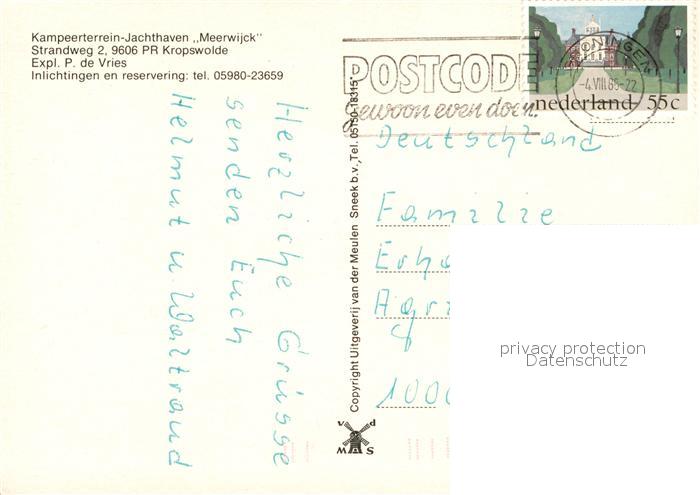 Kampeerterrein-Jachthaven „Meerwijck"
Strandweg 2, 9606 PR Kropswolde
Expl. P. de Vries
Inlichtingen en reservering: tel. 05980-23659
Herzliche Grüsse
senden Euch
Helmut u. Waltraud
Copyright Uitgeverij van der Meulen Sneek b.v., Tel. 05150-18315*
v d
M S
POSTCODE
Gewoon even doen.
GRONINGEN
-4.VIII.85-22
nederland 55c
Deutschland
Familie
Erh
1000
privacy protection
Datenschutz